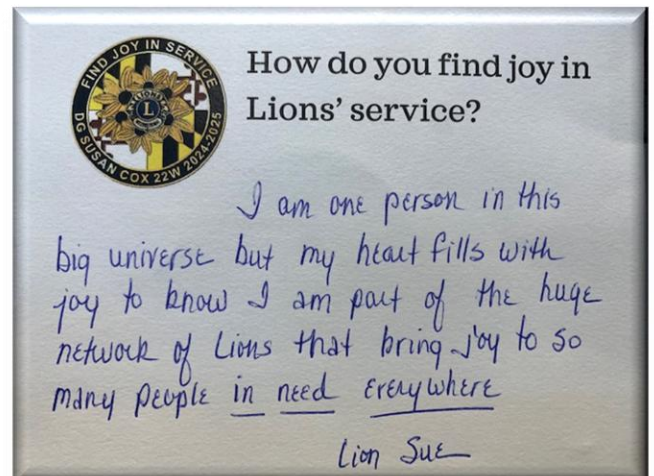 FIND JOY IN SERVICE
DG SUSAN COX 22W 2024-2025
L
How do you find joy in
Lions' service?
I am one person in this
big universe but my heart fills with
joy to know I am part of the huge
network of Lions that bring joy to so
many people in need everywhere
Lion Sue